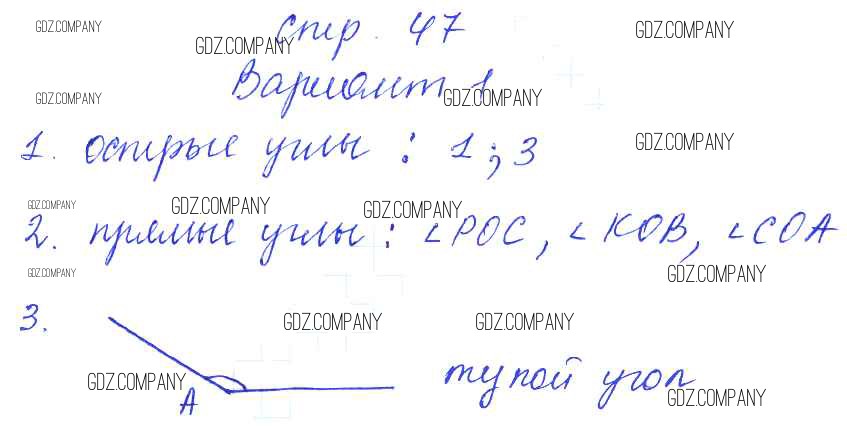 GDZ.COMPANY стр. 47 GDZ.COMPANY
GDZ.COMPANY
GDZ.COMPANY Вариант 1 GDZ.COMPANY
1. острые углы : 1 ; 3 GDZ.COMPANY
GDZ.COMPANY GDZ.COMPANY GDZ.COMPANY
2. прямые углы : ∠POC, ∠KOB, ∠COA
GDZ.COMPANY GDZ.COMPANY
3. GDZ.COMPANY GDZ.COMPANY
GDZ.COMPANY A тупой угол GDZ.COMPANY